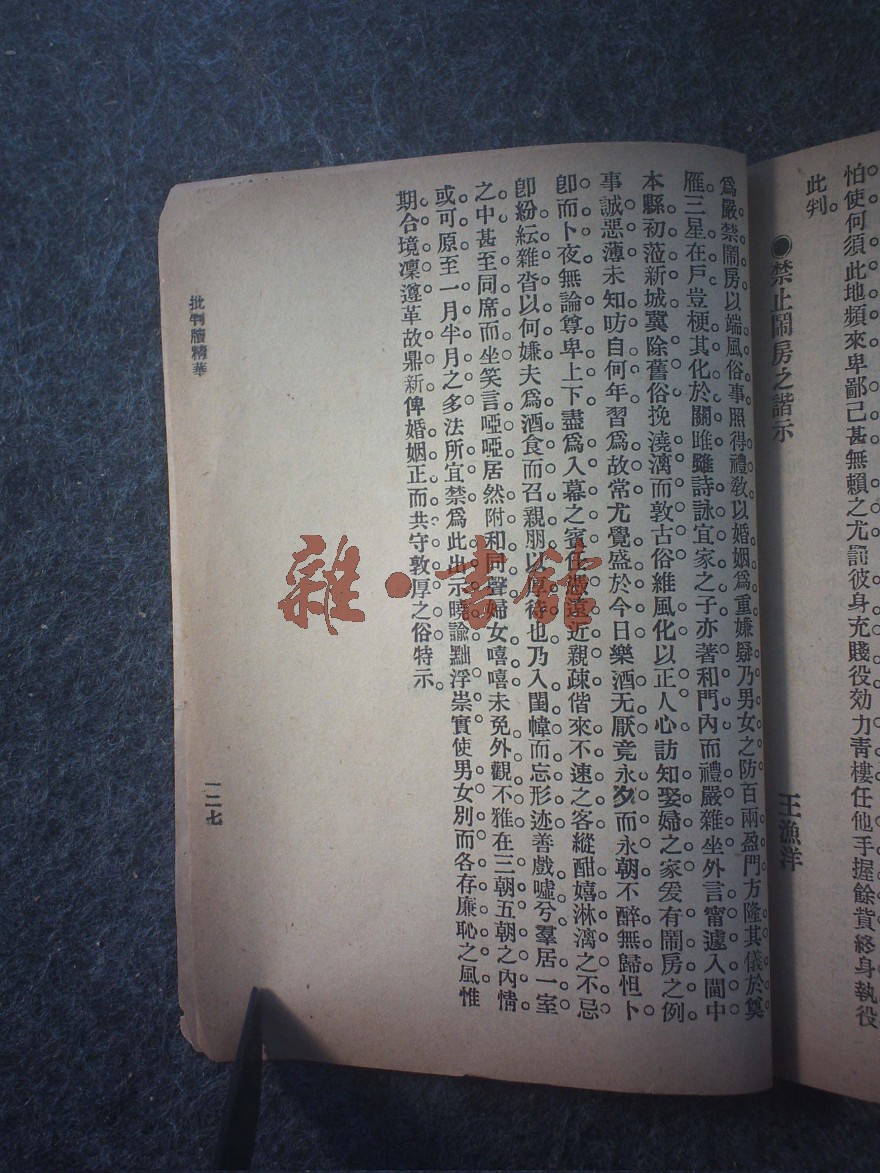 怕使何須此地頻來卑鄙已甚無賴之尤罰彼身充賤役効力靑樓任他手握餘貲終身執役
此判。
◉禁止鬧房之諧示 王漁洋
爲嚴禁鬧房以端風俗事照得禮敎以婚姻爲重嫌疑乃男女之防百兩盈門方隆其儀於奠
雁。三星在戶。豈梗其化於關雎雖詩詠宜家之子亦著和門內而禮嚴雜坐外言甯遽入閫中
本縣初蒞新城冀除舊俗挽澆漓而敦古俗維風化以正人心訪知娶婦之家爰有鬧房之例
事誠惡薄未知昉自何年習爲故常尤覺盛於今日樂酒无厭竟永夕而永朝不醉無歸怛卜
卽而卜夜無論尊卑上下盡爲入幕之賓任遠近親疎偕來不速之客縱酣嬉淋漓之不忌
卽紛紜雜沓以何嫌夫爲酒食而召親朋以厚待也乃入閨幃而忘形迹善戲噱兮羣居一室
之中甚至同席而坐笑言啞啞居然附和同聲婦女嘻嘻未免外觀不雅在三朝五朝之內情
或可原至一月半月之多法所宜禁爲此出示曉諭黜浮崇實使男女別而各存廉恥之風惟
期合境凜遵革故鼎新俾婚姻正而共守敦厚之俗特示。
批判牘精華
一二七
雜·書館